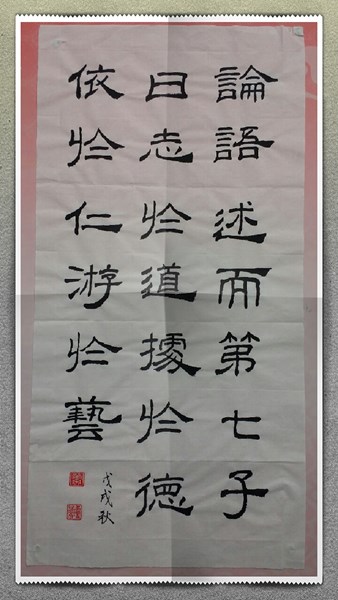 論語述而第七子
曰志於道據於德
依於仁游於藝
戊戌秋